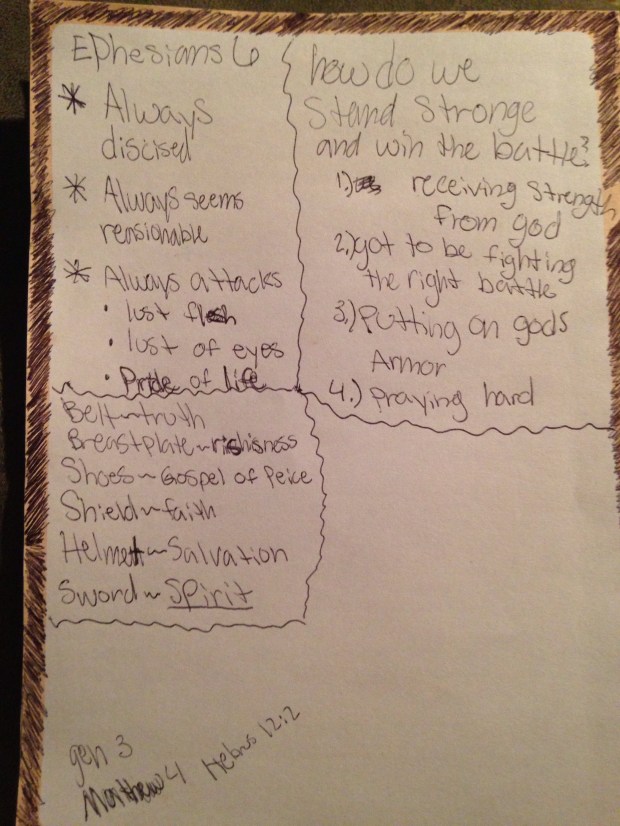 Ephesians 6
* Always
discised
* Always seems
rensionable
* Always attacks
• lust flesh
• lust of eyes
• Pride of life
how do we
Stand Stronge
and win the battle?
1.) receiving Strength
from god
2.) got to be fighting
the right battle
3.) Putting on gods
Armor
4.) praying hard
Belt~truth
Breastplate~rishisness
Shoes~Gospel of Peice
Shield~faith
Helmet~Salvation
Sword~Spirit
gen 3
Matthew 4
Hebrws 12:2